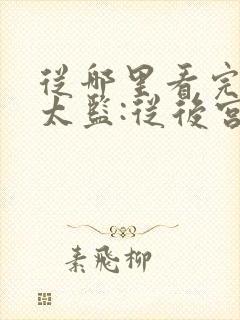 從哪里看完
太監:從後宮
素飛柳